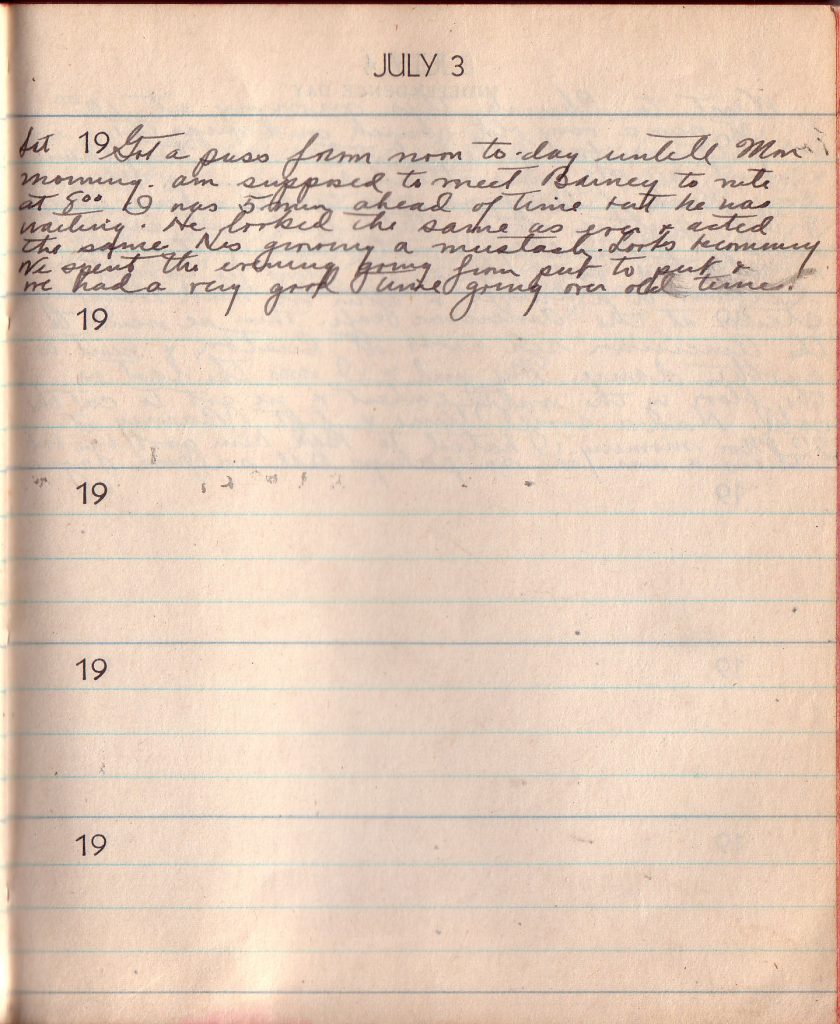 JULY 3
Sat 19 Got a pass form noon to-day untell Mon
morning. am supposed to meet Barney to nite
at 8 00 I was 5 min ahead of time but he was
waiting. He looked the same as ever & acted
the same. Hes growing a mustach. Looks
We spent the evening going from put to put &
we had a very good time going over old time.
19
19
19
19